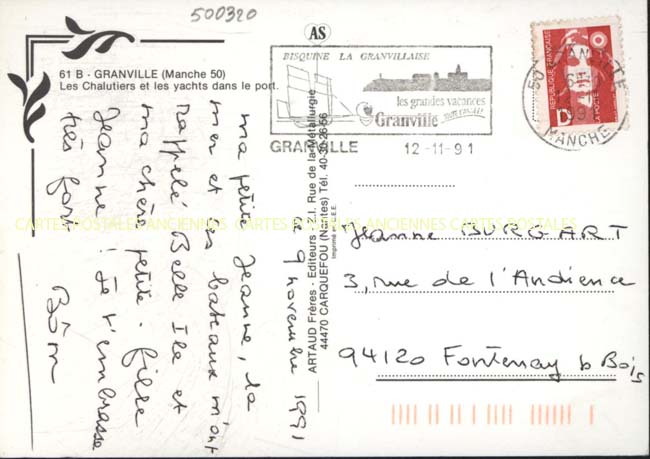 500320
61 B - GRANVILLE (Manche 50)
Les Chalutiers et les yachts dans le port.
AS
BISQUINE LA GRANVILLAISE
les grandes vacances
Granville
GRANVILLE 12-11-91
50 GRANVILLE
MANCHE
REPUBLIQUE FRANÇAISE
LA POSTE
D
9 novembre 1991
ma petite Jeanne, la
mer et les bateaux m'ont
rappelé Belle Ile et
ma chère petite-fille
Jeanne ! Je t'embrasse
très fort
Bôm
ARTAUD Frères - Editeurs - Z.I. Rue de la Métallurgie
44470 CARQUEFOU (Nantes) Tél. 40-30-26-66
Imprimé en C.E.E.
Jeanne BURGART
3, rue de l'Audience
94120 Fontenay s Bois
CARTES POSTALES ANCIENNES CARTES POSTALES ANCIENNES CARTES POSTALES